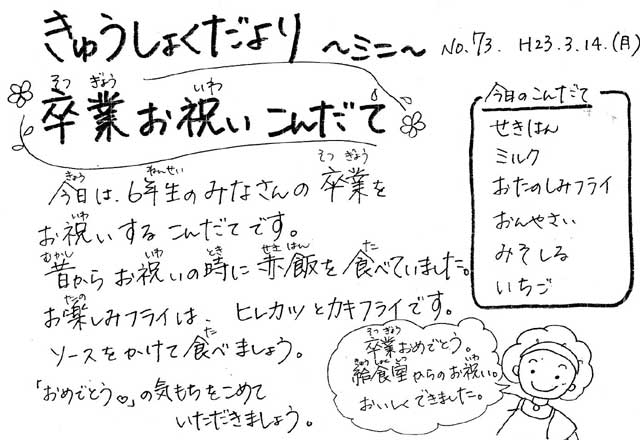 きゅうしょくだより ～ミニ～ No.73. H23.3.14.(月)
卒業お祝いこんだて
そつ ぎょう いわ
今日は、6年生のみなさんの卒業を
きょう ねんせい そつ ぎょう
お祝いするこんだてです。
いわ
昔からお祝いの時に赤飯を食べていました。
むかし いわ とき せき はん た
お楽しみフライは、ヒレカツとカキフライです。
たの
ソースをかけて食べましょう。
た
「おめでとう♡」の気もちをこめて
いただきましょう。
今日のこんだて
せきはん
ミルク
おたのしみフライ
おんやさい
みそしる
いちご
卒業おめでとう。
そつ ぎょう
給食室からのお祝い。
きゅう しょく しつ いわ
おいしくできました。